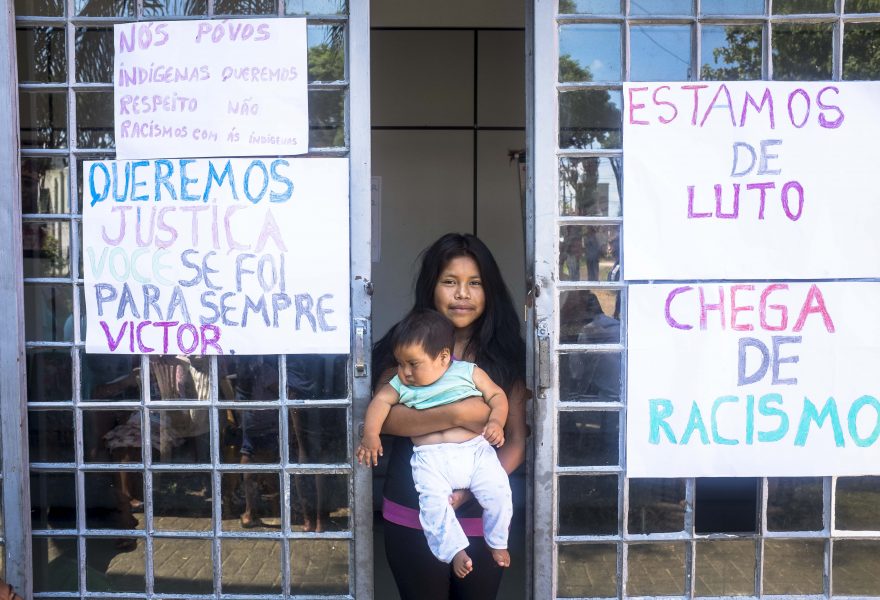 NÓS PÓVOS
INDÍGENAS QUEREMOS
RESPEITO NÃO
RACISMOS COM ÁS INDÍGENAS
QUEREMOS
JUSTIÇA
VOCÊ SE FOI
PARA SEMPRE
VICTOR.
ESTAMOS
DE
LUTO
CHEGA
DE
RACISMO